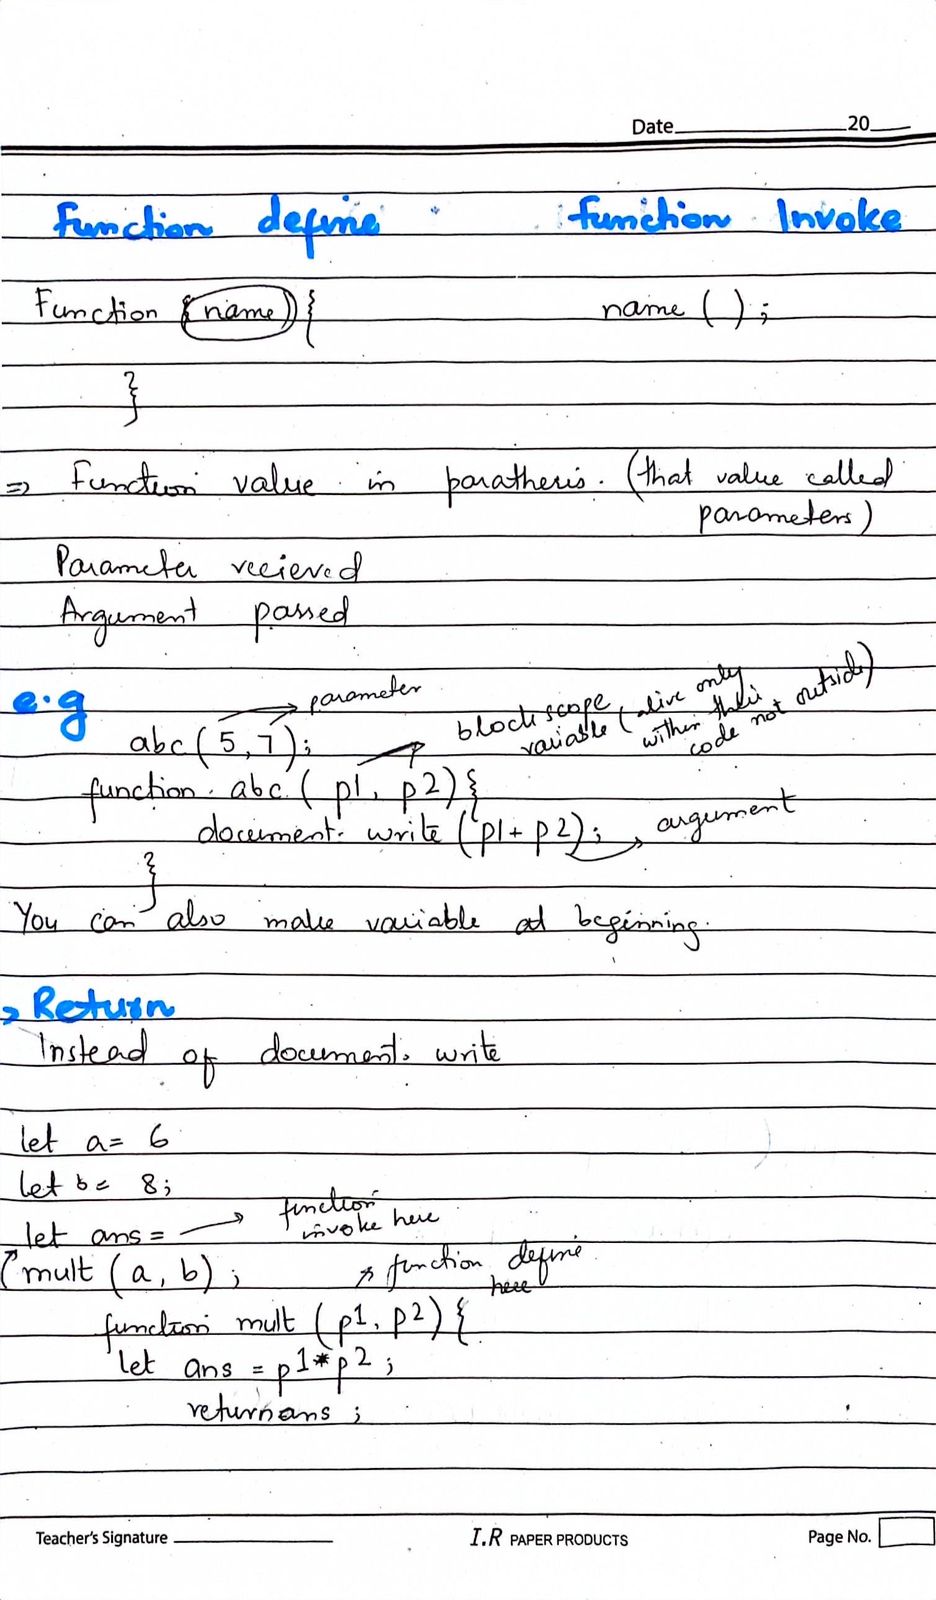 Date 20
Function define
function Invoke
Function (name) {
name ( ) ;
}
=> Function value in parathesis. (that value called
parameters)
Parameter recieved
Argument passed
e.g
parameter
abc ( 5, 7 ) ;
block scope
variable ( alive only
within their
code not outside)
function. abc. ( p1, p2 ) {
document. write ( p1 + p2 ) ;
argument
}
You can also make variable at beginning.
> Return
Instead of document. write
let a = 6
let b = 8 ;
let ans =
function
invoke here
mult ( a , b ) ;
function define
here
function mult ( p1, p2 ) {
let ans = p1 * p2 ;
return ans ;
Teacher's Signature
I.R PAPER PRODUCTS
Page No.